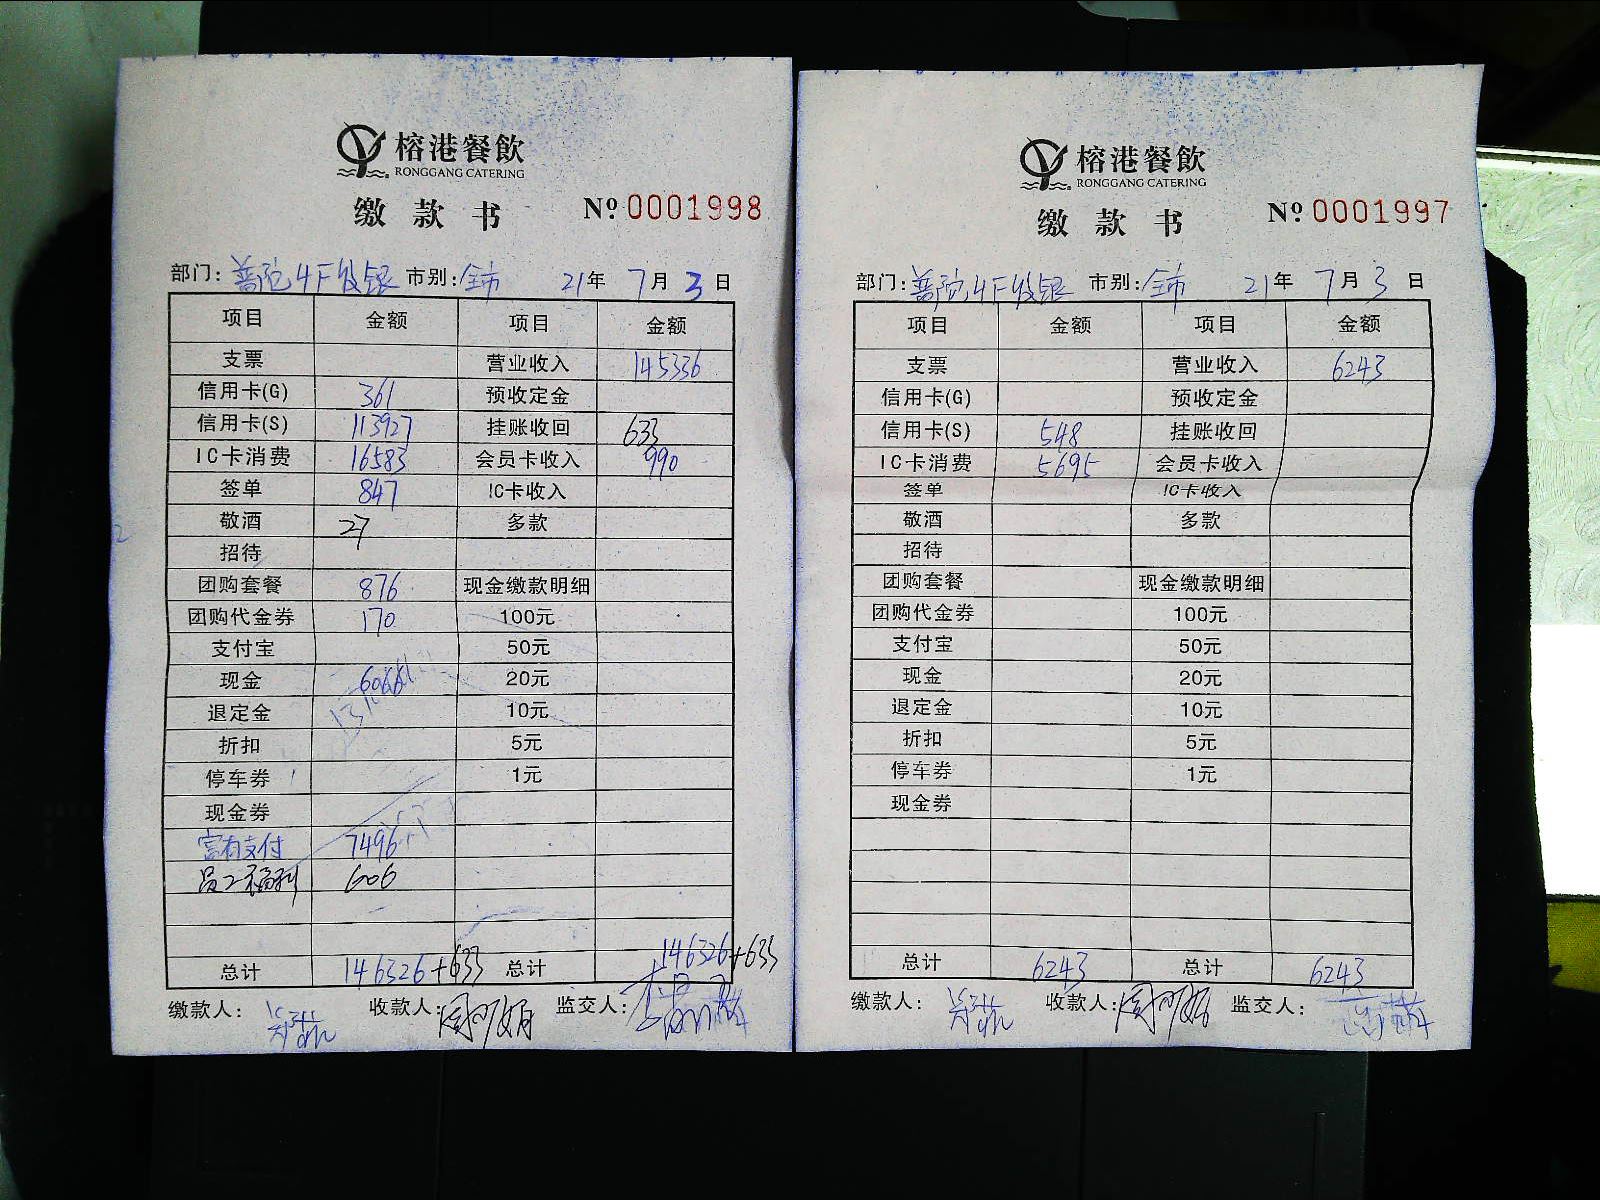 榕港餐飲
RONGGANG CATERING
缴款书 №0001998
部门: 普陀4F收银 市别: 全市 21年 7月 3日
项目 金额 项目 金额
支票 营业收入 145336
信用卡(G) 361 预收定金
信用卡(S) 113927 挂账收回 633
IC卡消费 16583 会员卡收入 990
签单 847 IC卡收入
敬酒 27 多款
招待
团购套餐 876 现金缴款明细
团购代金券 170 100元
支付宝 50元
现金 6066 20元
退定金 10元
折扣 5元
停车券 1元
现金券
富有支付 7496
员工福利 606
总计 146326+633 总计 146326+633
缴款人: 收款人: 监交人:
榕港餐飲
RONGGANG CATERING
缴款书 №0001997
部门: 普陀4F收银 市别: 全市 21年 7月 3日
项目 金额 项目 金额
支票 营业收入 6243
信用卡(G) 预收定金
信用卡(S) 548 挂账收回
IC卡消费 5695 会员卡收入
签单 IC卡收入
敬酒 多款
招待
团购套餐 现金缴款明细
团购代金券 100元
支付宝 50元
现金 20元
退定金 10元
折扣 5元
停车券 1元
现金券
总计 6243 总计 6243
缴款人: 收款人: 监交人: